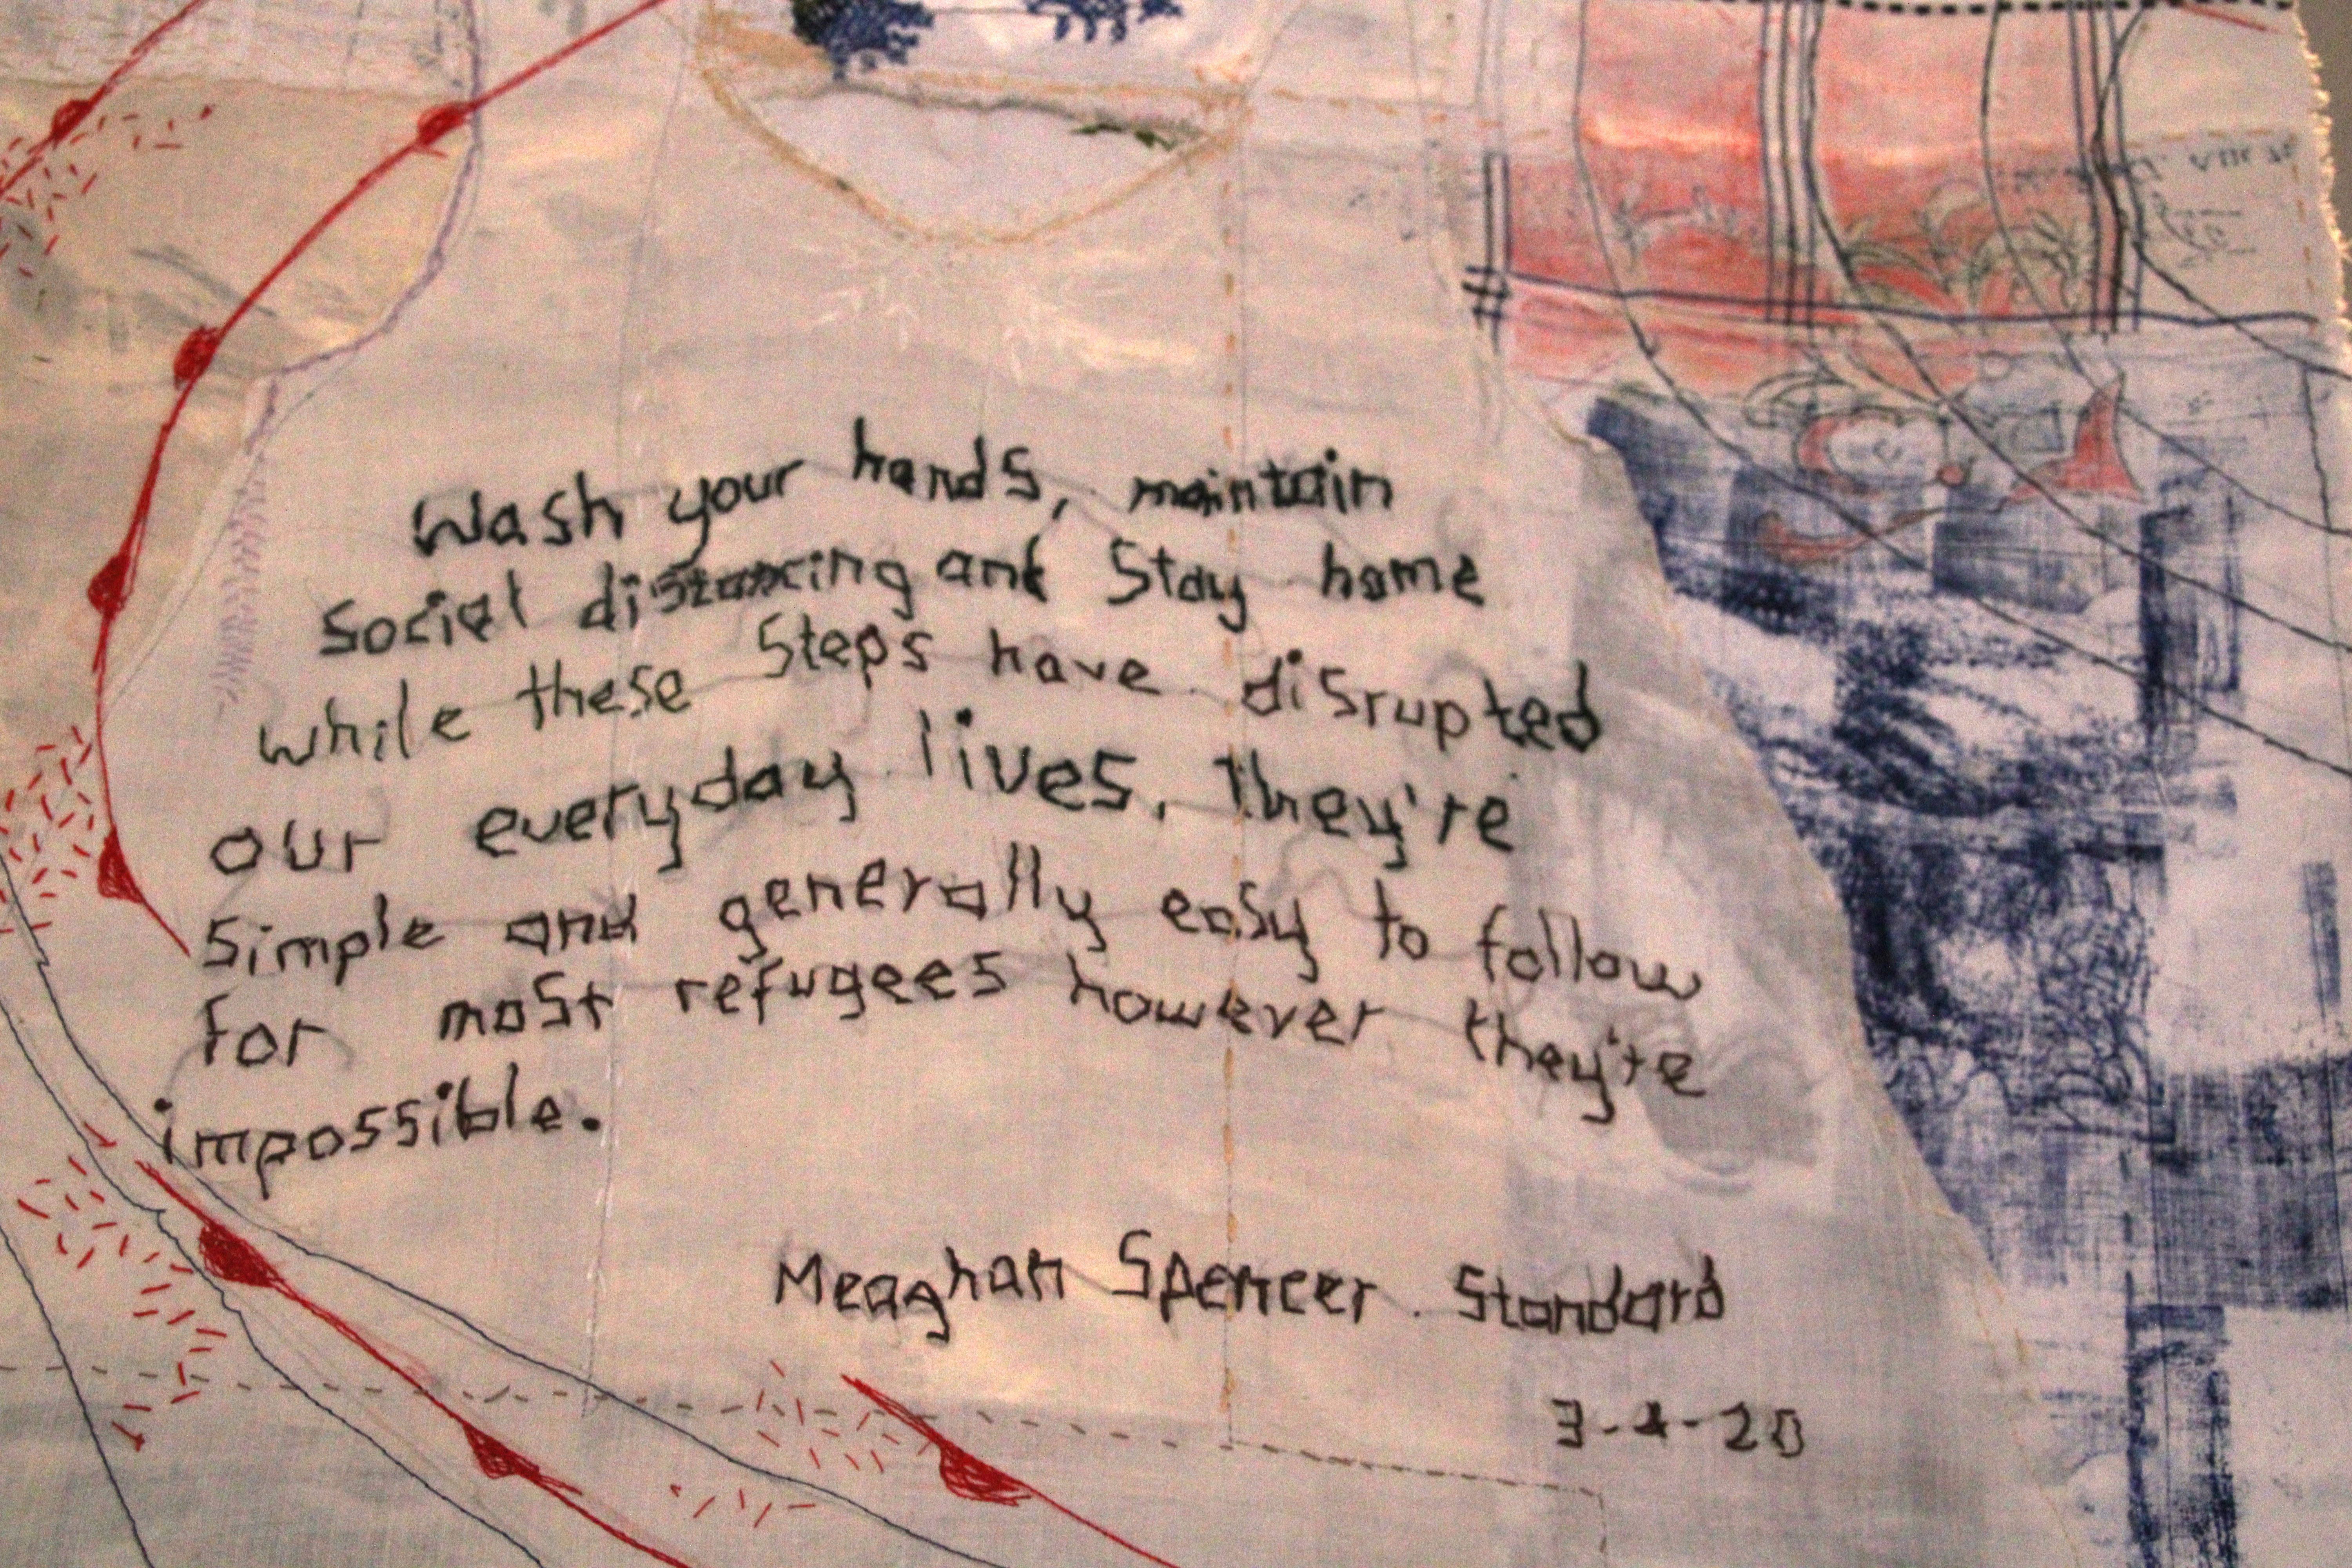 Wash your hands, maintain
Social distancing and Stay home
while these Steps have disrupted
our everyday lives, they're
Simple and generally easy to follow
for most refugees however they're
impossible.
Meaghan Spencer. Standard
3-4-20